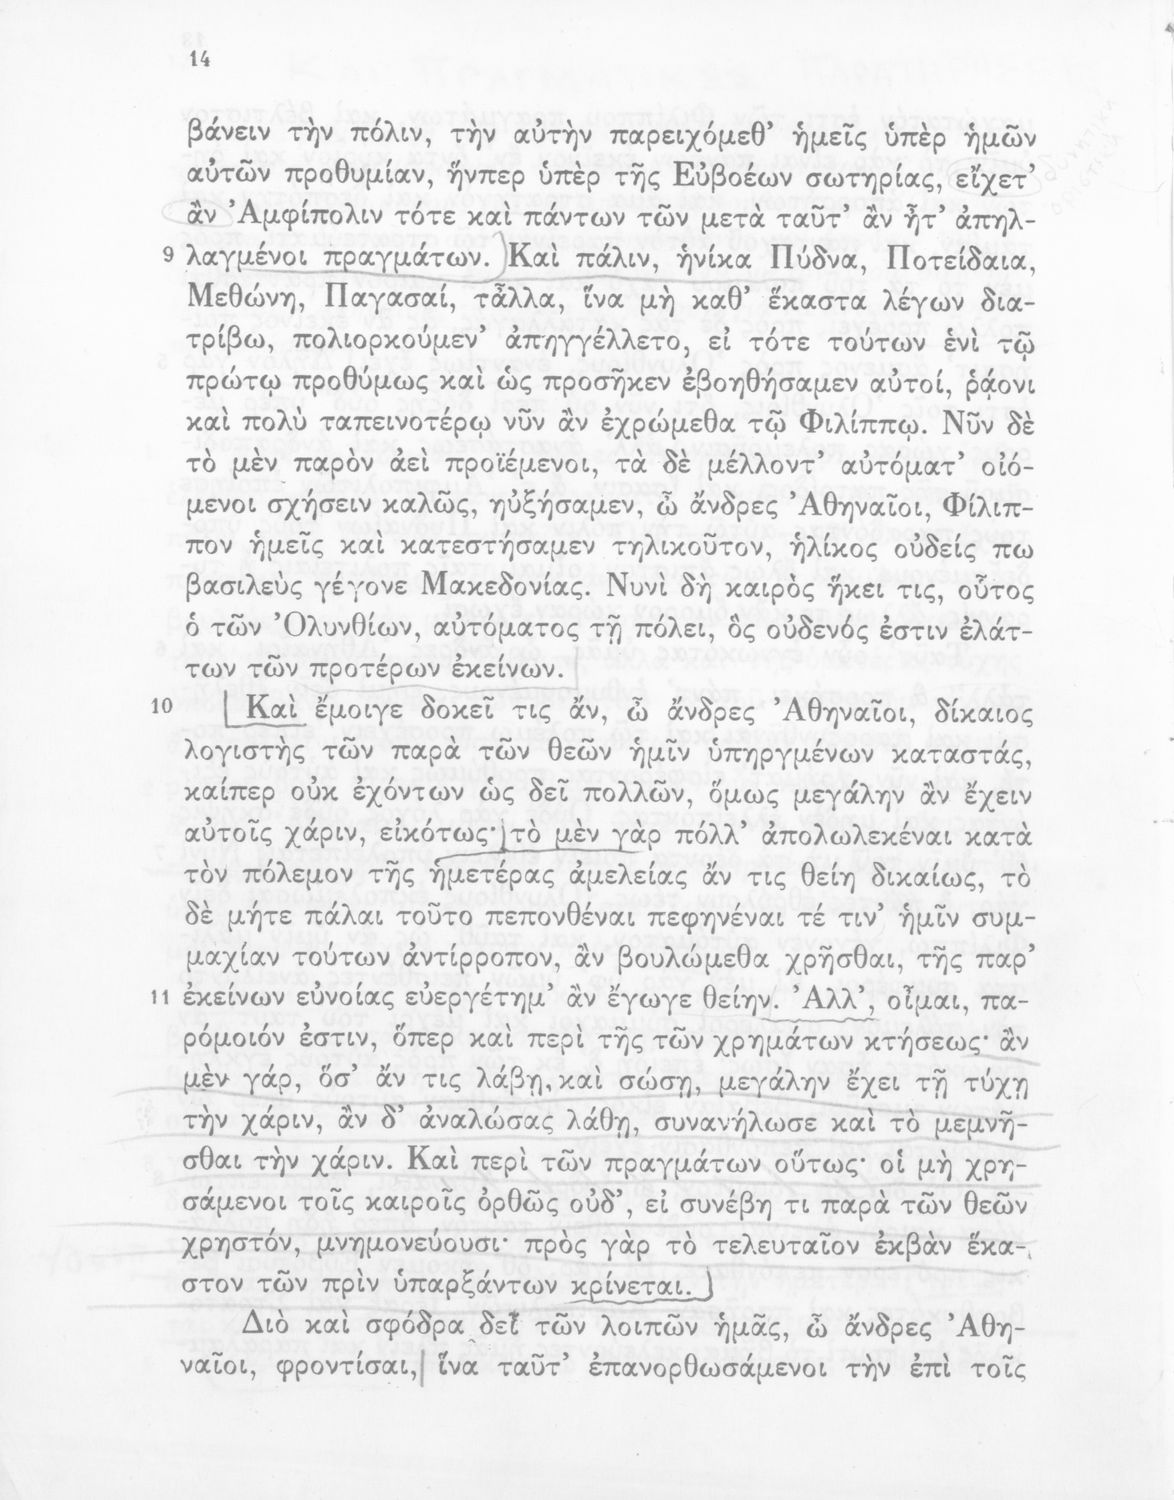 14
βάνειν τὴν πόλιν, τὴν αὐτὴν παρειχόμεθ’ ἡμεῖς ὑπὲρ ἡμῶν
αὐτῶν προθυμίαν, ἥνπερ ὑπὲρ τῆς Εὐβοέων σωτηρίας, εἴχετ’
ἂν Ἀμφίπολιν τότε καὶ πάντων τῶν μετὰ ταῦτ’ ἂν ἦτ’ ἀπηλ-
9 λαγμένοι πραγμάτων. Καὶ πάλιν, ἡνίκα Πύδνα, Ποτείδαια,
Μεθώνη, Παγασαί, τἆλλα, ἵνα μὴ καθ’ ἕκαστα λέγων δια-
τρίβω, πολιορκούμεν’ ἀπηγγέλλετο, εἰ τότε τούτων ἑνὶ τῷ
πρώτῳ προθύμως καὶ ὡς προσῆκεν ἐβοηθήσαμεν αὐτοί, ῥᾴονι
καὶ πολὺ ταπεινοτέρῳ νῦν ἂν ἐχρώμεθα τῷ Φιλίππῳ. Νῦν δὲ
τὸ μὲν παρὸν ἀεὶ προϊέμενοι, τὰ δὲ μέλλοντ’ αὐτόματ’ οἰό-
μενοι σχήσειν καλῶς, ηὐξήσαμεν, ὦ ἄνδρες Ἀθηναῖοι, Φίλιπ-
πον ἡμεῖς καὶ κατεστήσαμεν τηλικοῦτον, ἡλίκος οὐδείς πω
βασιλεὺς γέγονε Μακεδονίας. Νυνὶ δὴ καιρὸς ἥκει τις, οὗτος
ὁ τῶν Ὀλυνθίων, αὐτόματος τῇ πόλει, ὃς οὐδενός ἐστιν ἐλάτ-
των τῶν προτέρων ἐκείνων.
10 Καὶ ἔμοιγε δοκεῖ τις ἄν, ὦ ἄνδρες Ἀθηναῖοι, δίκαιος
λογιστὴς τῶν παρὰ τῶν θεῶν ἡμῖν ὑπηργμένων καταστάς,
καίπερ οὐκ ἐχόντων ὡς δεῖ πολλῶν, ὅμως μεγάλην ἂν ἔχειν
αὐτοῖς χάριν, εἰκότως· τὸ μὲν γὰρ πόλλ’ ἀπολωλεκέναι κατὰ
τὸν πόλεμον τῆς ἡμετέρας ἀμελείας ἄν τις θείη δικαίως, τὸ
δὲ μήτε πάλαι τοῦτο πεπονθέναι πεφηνέναι τέ τιν’ ἡμῖν συμ-
μαχίαν τούτων ἀντίρροπον, ἂν βουλώμεθα χρῆσθαι, τῆς παρ’
11 ἐκείνων εὐνοίας εὐεργέτημ’ ἂν ἔγωγε θείην. Ἀλλ’, οἶμαι, πα-
ρόμοιόν ἐστιν, ὅπερ καὶ περὶ τῆς τῶν χρημάτων κτήσεως· ἂν
μὲν γάρ, ὅσ’ ἄν τις λάβῃ, καὶ σώσῃ, μεγάλην ἔχει τῇ τύχῃ
τὴν χάριν, ἂν δ’ ἀναλώσας λάθῃ, συνανήλωσε καὶ τὸ μεμνῆ-
σθαι τὴν χάριν. Καὶ περὶ τῶν πραγμάτων οὕτως· οἱ μὴ χρη-
σάμενοι τοῖς καιροῖς ὀρθῶς οὐδ’, εἰ συνέβη τι παρὰ τῶν θεῶν
χρηστόν, μνημονεύουσι· πρὸς γὰρ τὸ τελευταῖον ἐκβὰν ἕκα-
στον τῶν πρὶν ὑπαρξάντων κρίνεται.
Διὸ καὶ σφόδρα δεῖ τῶν λοιπῶν ἡμᾶς, ὦ ἄνδρες Ἀθη-
ναῖοι, φροντίσαι, ἵνα ταῦτ’ ἐπανορθωσάμενοι τὴν ἐπὶ τοῖς